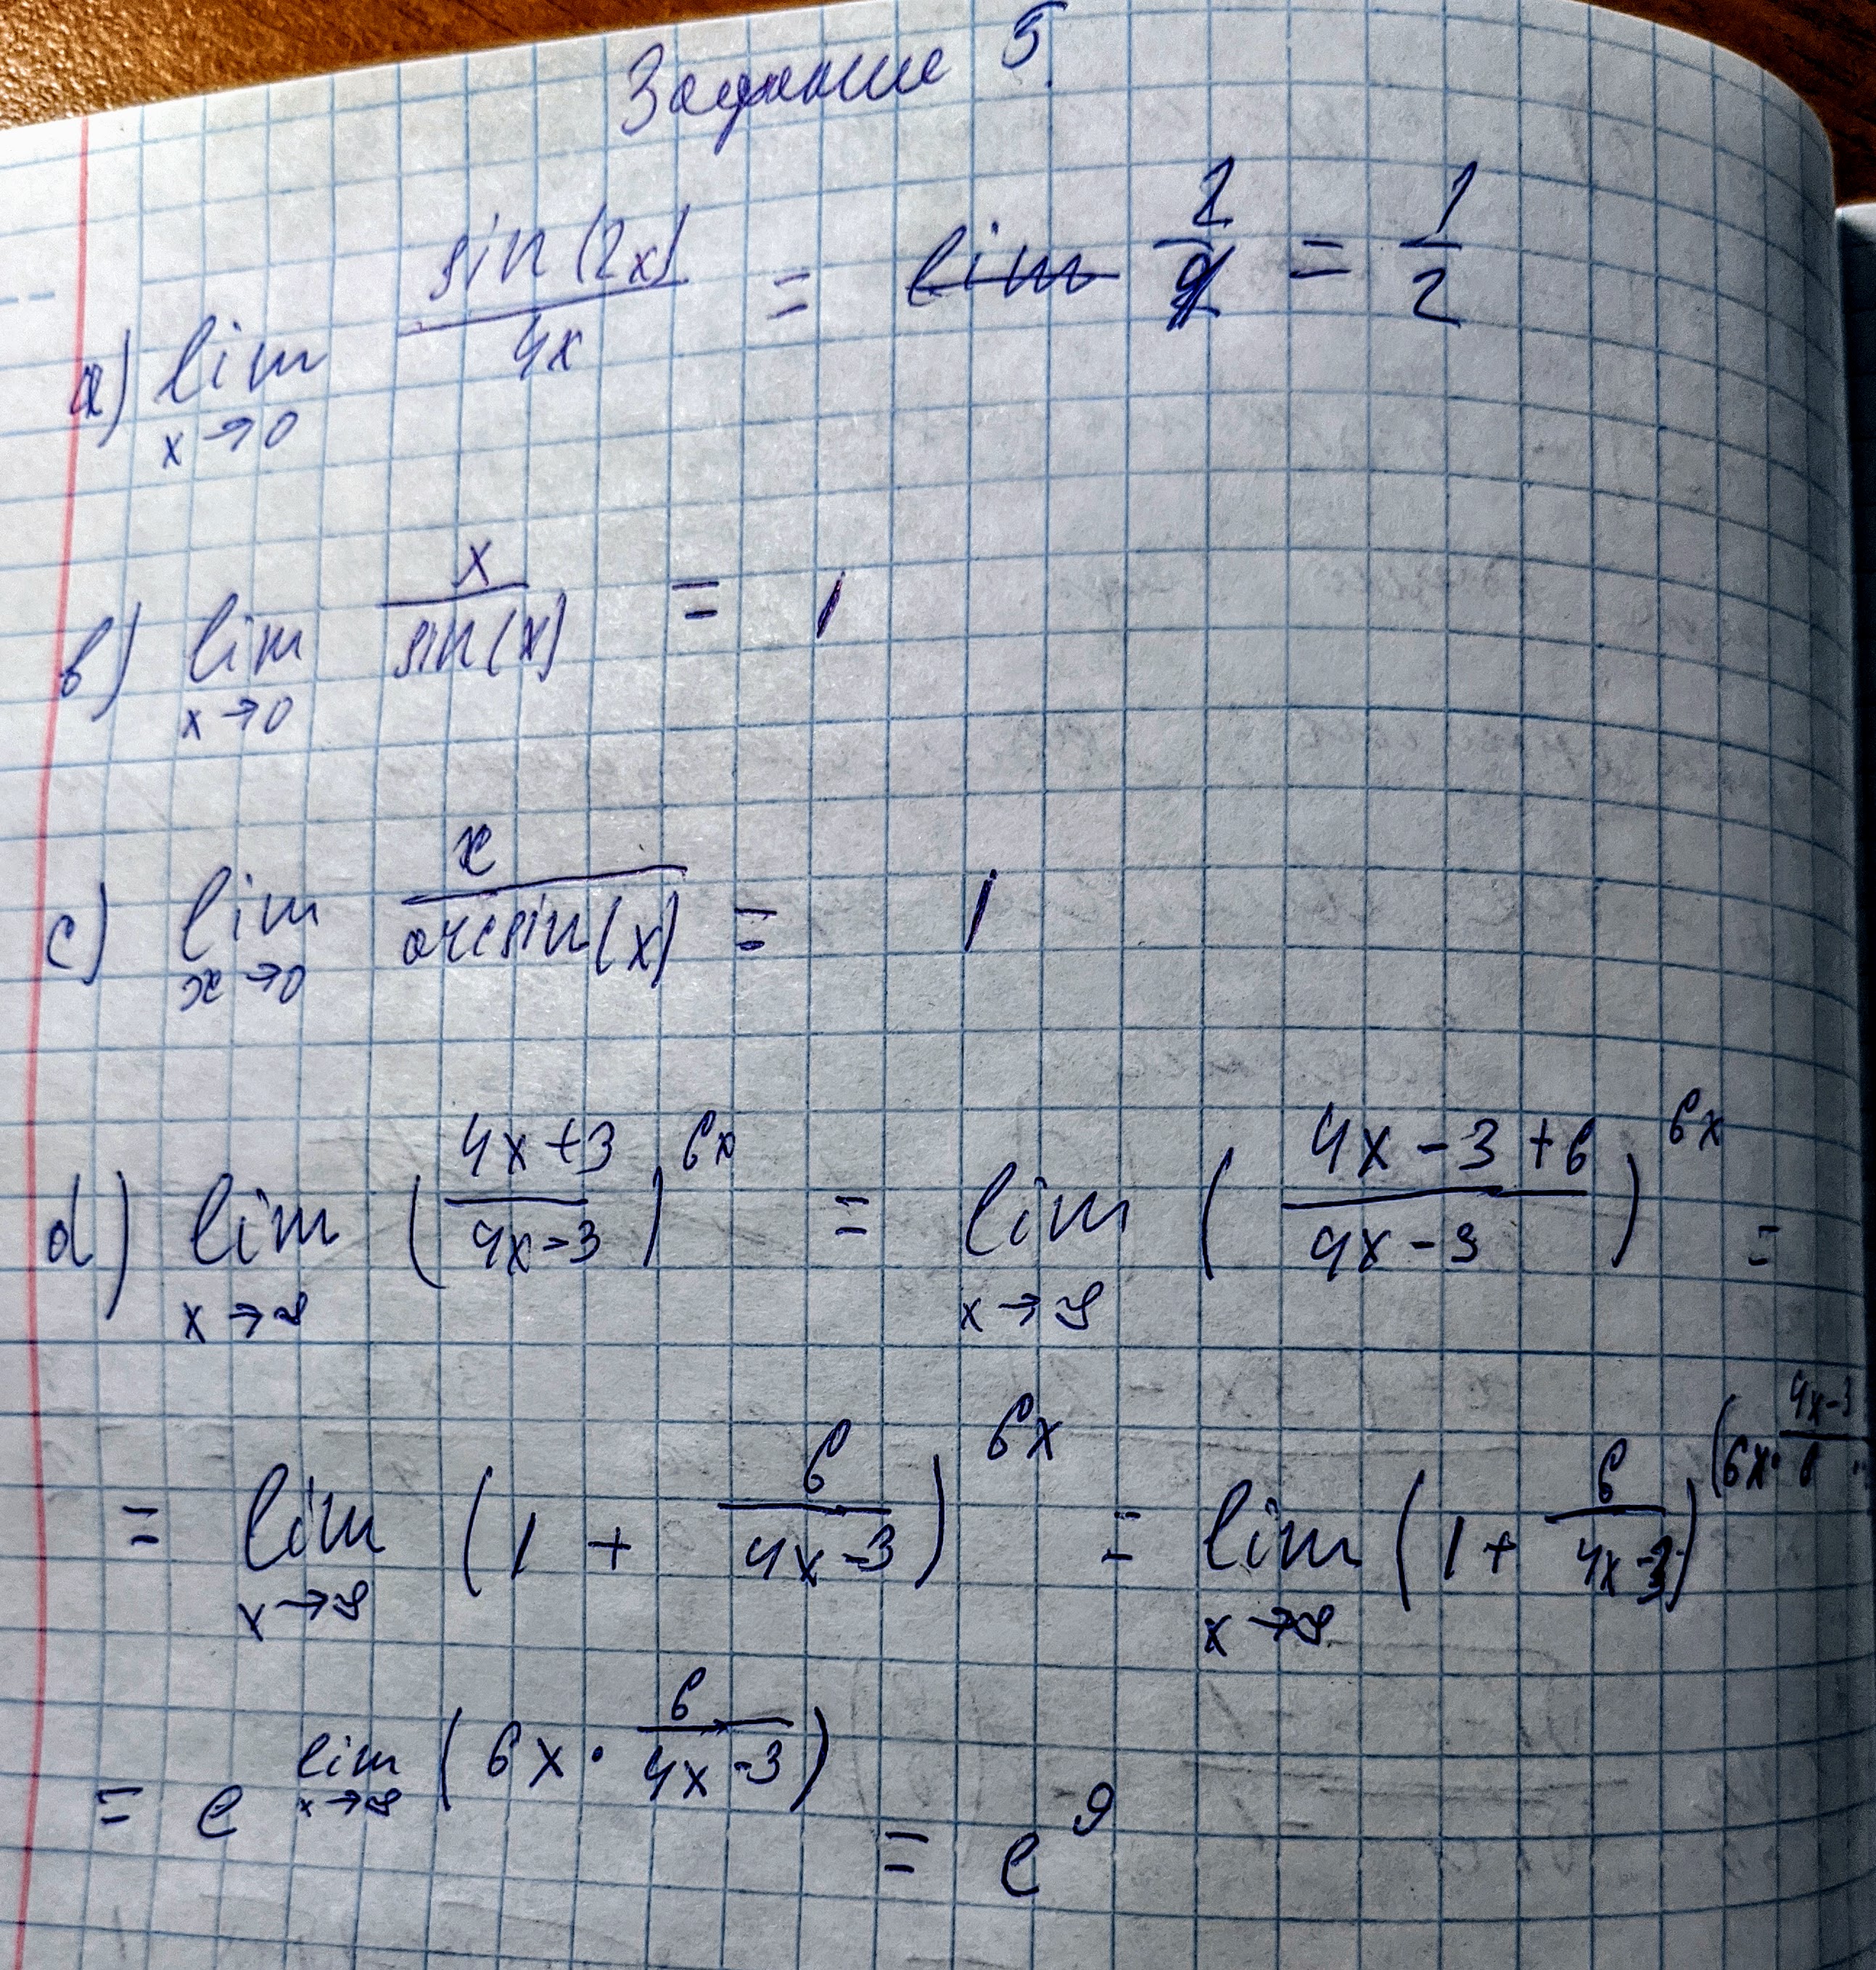 Задание 5.
a) lim x→0 sin(2x)/4x = 1/2 = 1/2
b) lim x→0 x/sin(x) = 1
c) lim x→0 x/arcsin(x) = 1
d) lim x→∞ ((4x+3)/(4x-3))^6x = lim x→∞ ((4x-3+6)/(4x-3))^6x =
= lim x→∞ (1 + 6/(4x-3))^6x = lim x→∞ (1 + 6/(4x-3))^(6x · (4x-3)/6
= e^lim x→∞ (6x · 6/(4x-3)) = e^9